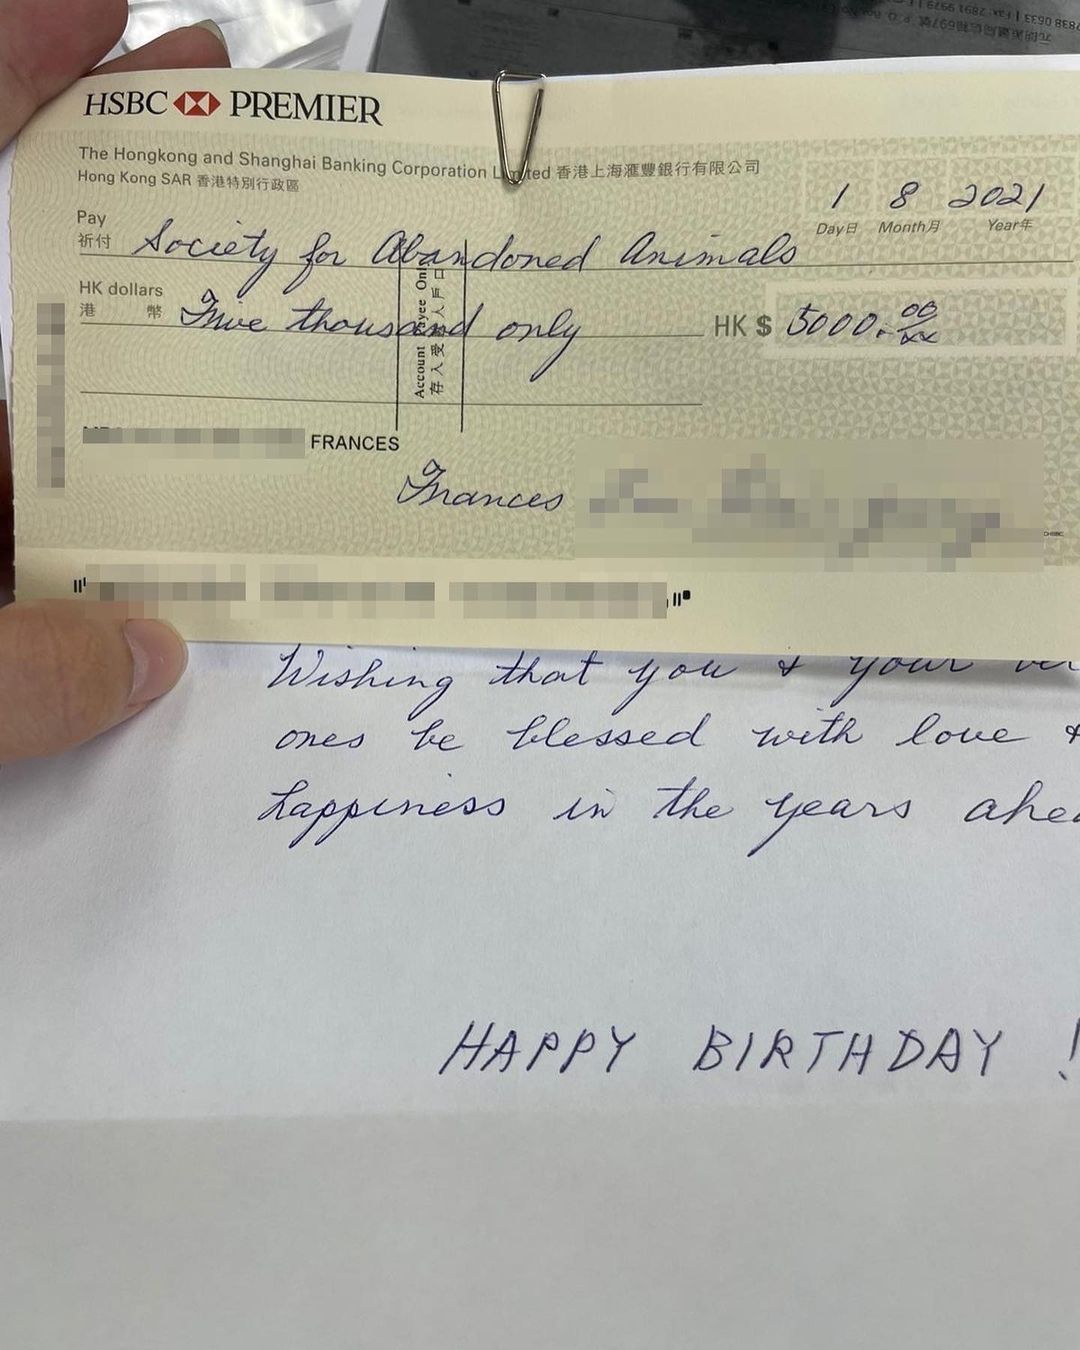 HSBC PREMIER
The Hongkong and Shanghai Banking Corporation Limited 香港上海滙豐銀行有限公司
Hong Kong SAR 香港特別行政區
1 8 2021
Day日 Month月 Year年
Pay
祈付
Society for Abandoned Animals
HK dollars
港幣
Five thousand only
HK $ 5000.00/xx
Account Payee Only
存入受款人戶口
FRANCES
Frances
Wishing that you & your
ones be blessed with love &
happiness in the years
HAPPY BIRTHDAY !